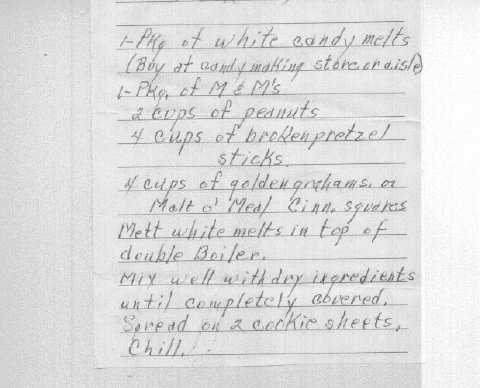 1-Pkg of white candy melts
(Buy at candy making store or aisle)
1-Pkg. of M & M's
2 cups of peanuts
4 cups of broken pretzel
sticks
4 cups of golden grahams. or
Malt o' Meal Cinn. squares
Melt white melts in top of
double Boiler.
Mix well with dry ingredients
until completely covered.
Spread on 2 cookie sheets.
Chill.